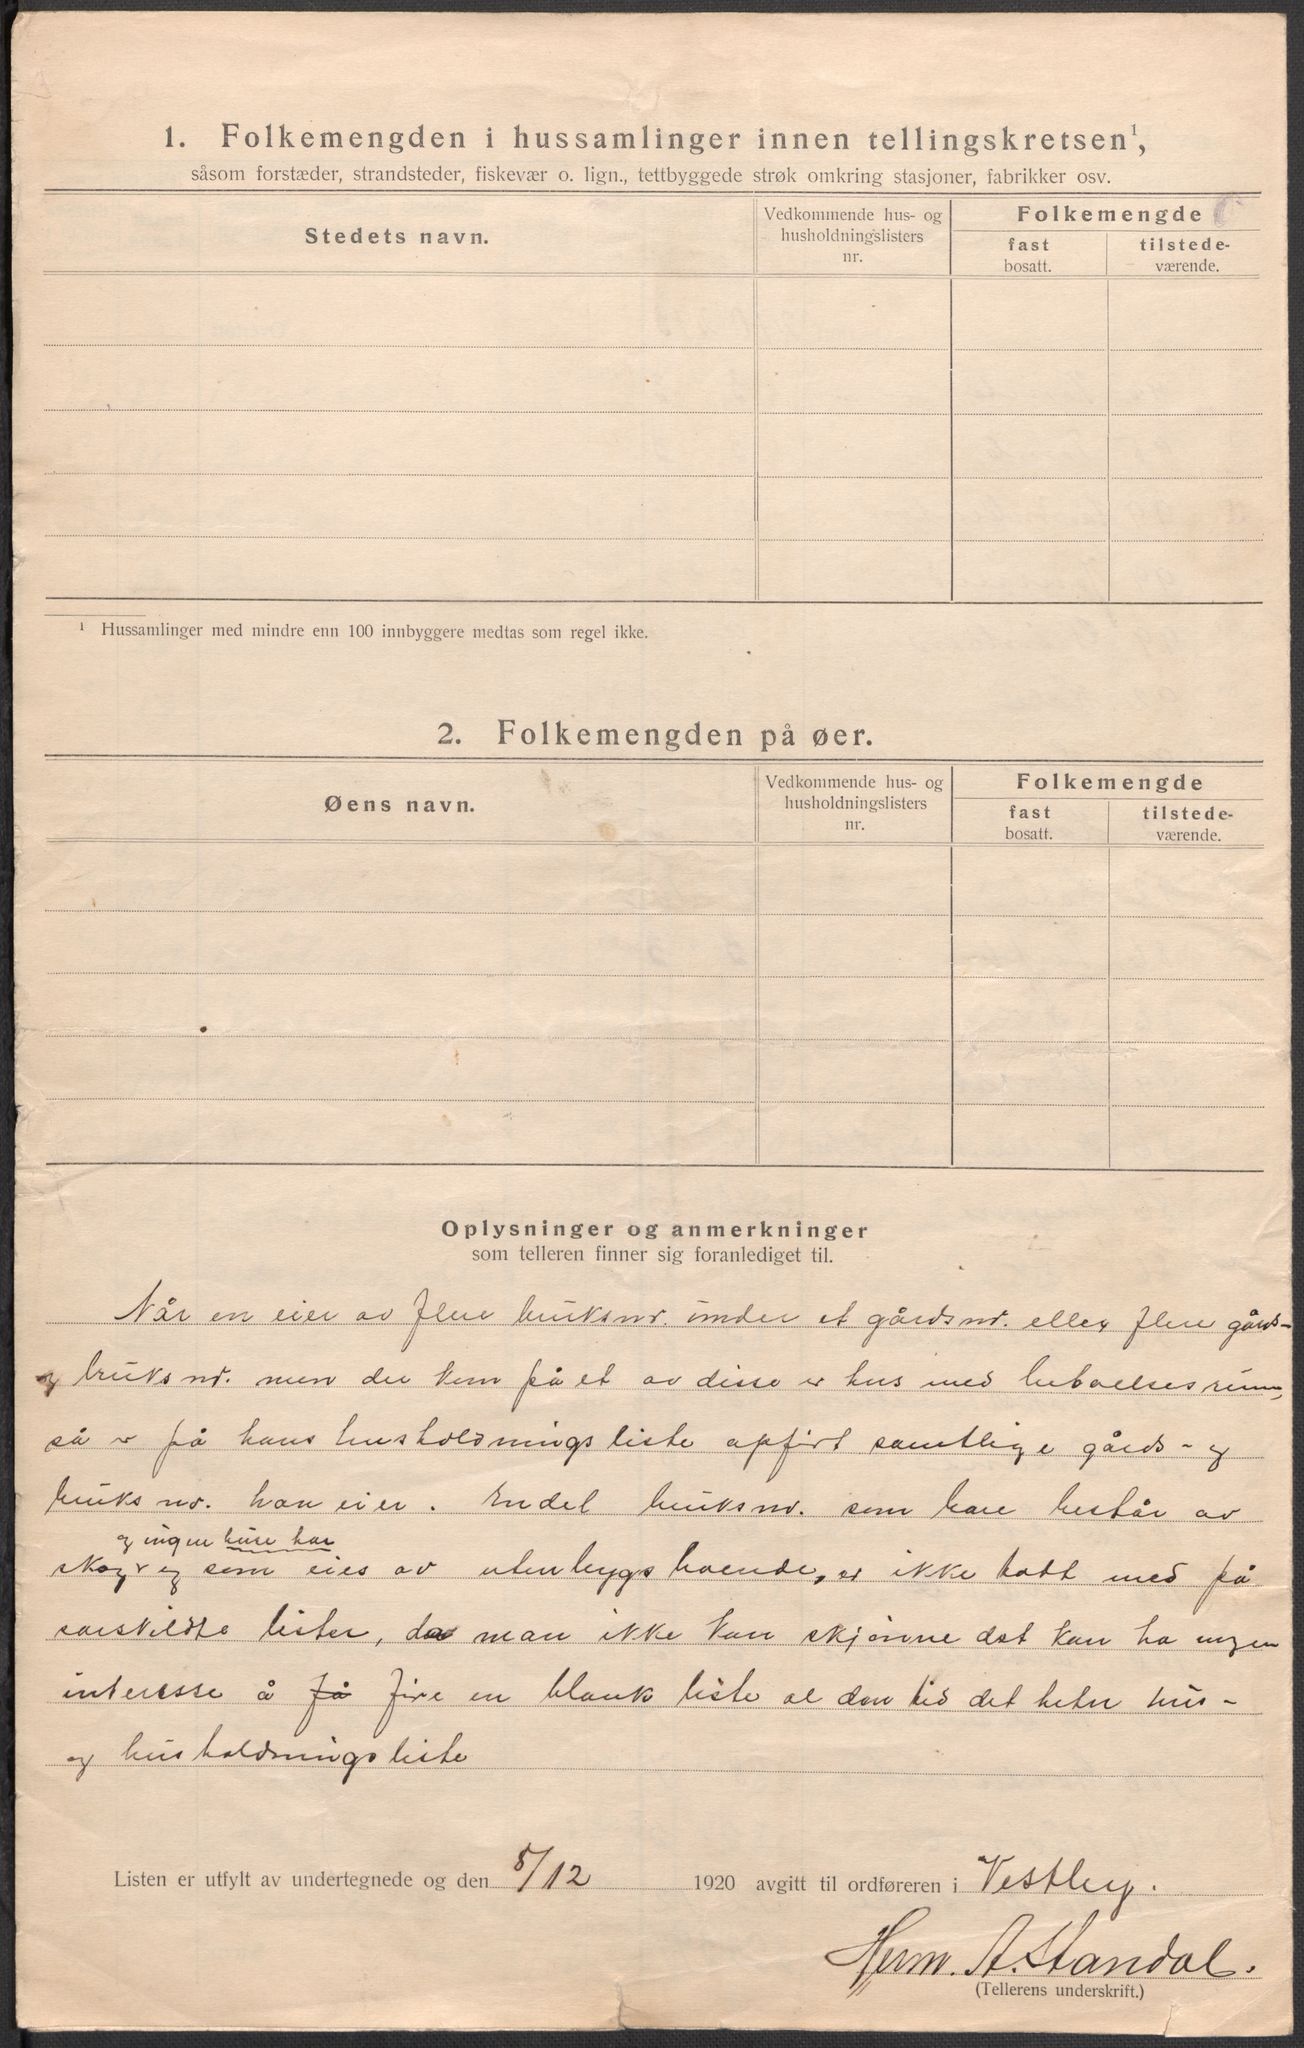 1. Folkemengden i hussamlinger innen tellingskretsen¹,
såsom forstæder, strandsteder, fiskevær o. lign., tettbyggede strøk omkring stasjoner, fabrikker osv.
Stedets navn.
Vedkommende hus- og
husholdningslisters
nr.
Folkemengde
fast
bosatt.
tilstede-
værende.
¹ Hussamlinger med mindre enn 100 innbyggere medtas som regel ikke.
2. Folkemengden på øer.
Øens navn.
Vedkommende hus- og
husholdningslisters
nr.
Folkemengde
fast
bosatt.
tilstede-
værende.
Oplysninger og anmerkninger
som telleren finner sig foranlediget til.
Når en eier av flere bruksnr. under et gårdsnr. eller flere gårds-
og bruksnr. men der kun på et av disse er hus med beboelsesrum,
så er på hans husholdningsliste opført samtlige gårds- og
bruksnr. han eier. Endel bruksnr. som bare består av
og ingen huse har
skog og som eies av utenbygsboende, er ikke tatt med på
særskildte lister, da man ikke kan skjønne det kan ha nogen
interesse å få føre en blank liste al den tid det heter hus-
og husholdningsliste
Listen er utfylt av undertegnede og den 5/12 1920 avgitt til ordføreren i Vestby.
Herm. A. Standal.
(Tellerens underskrift.)